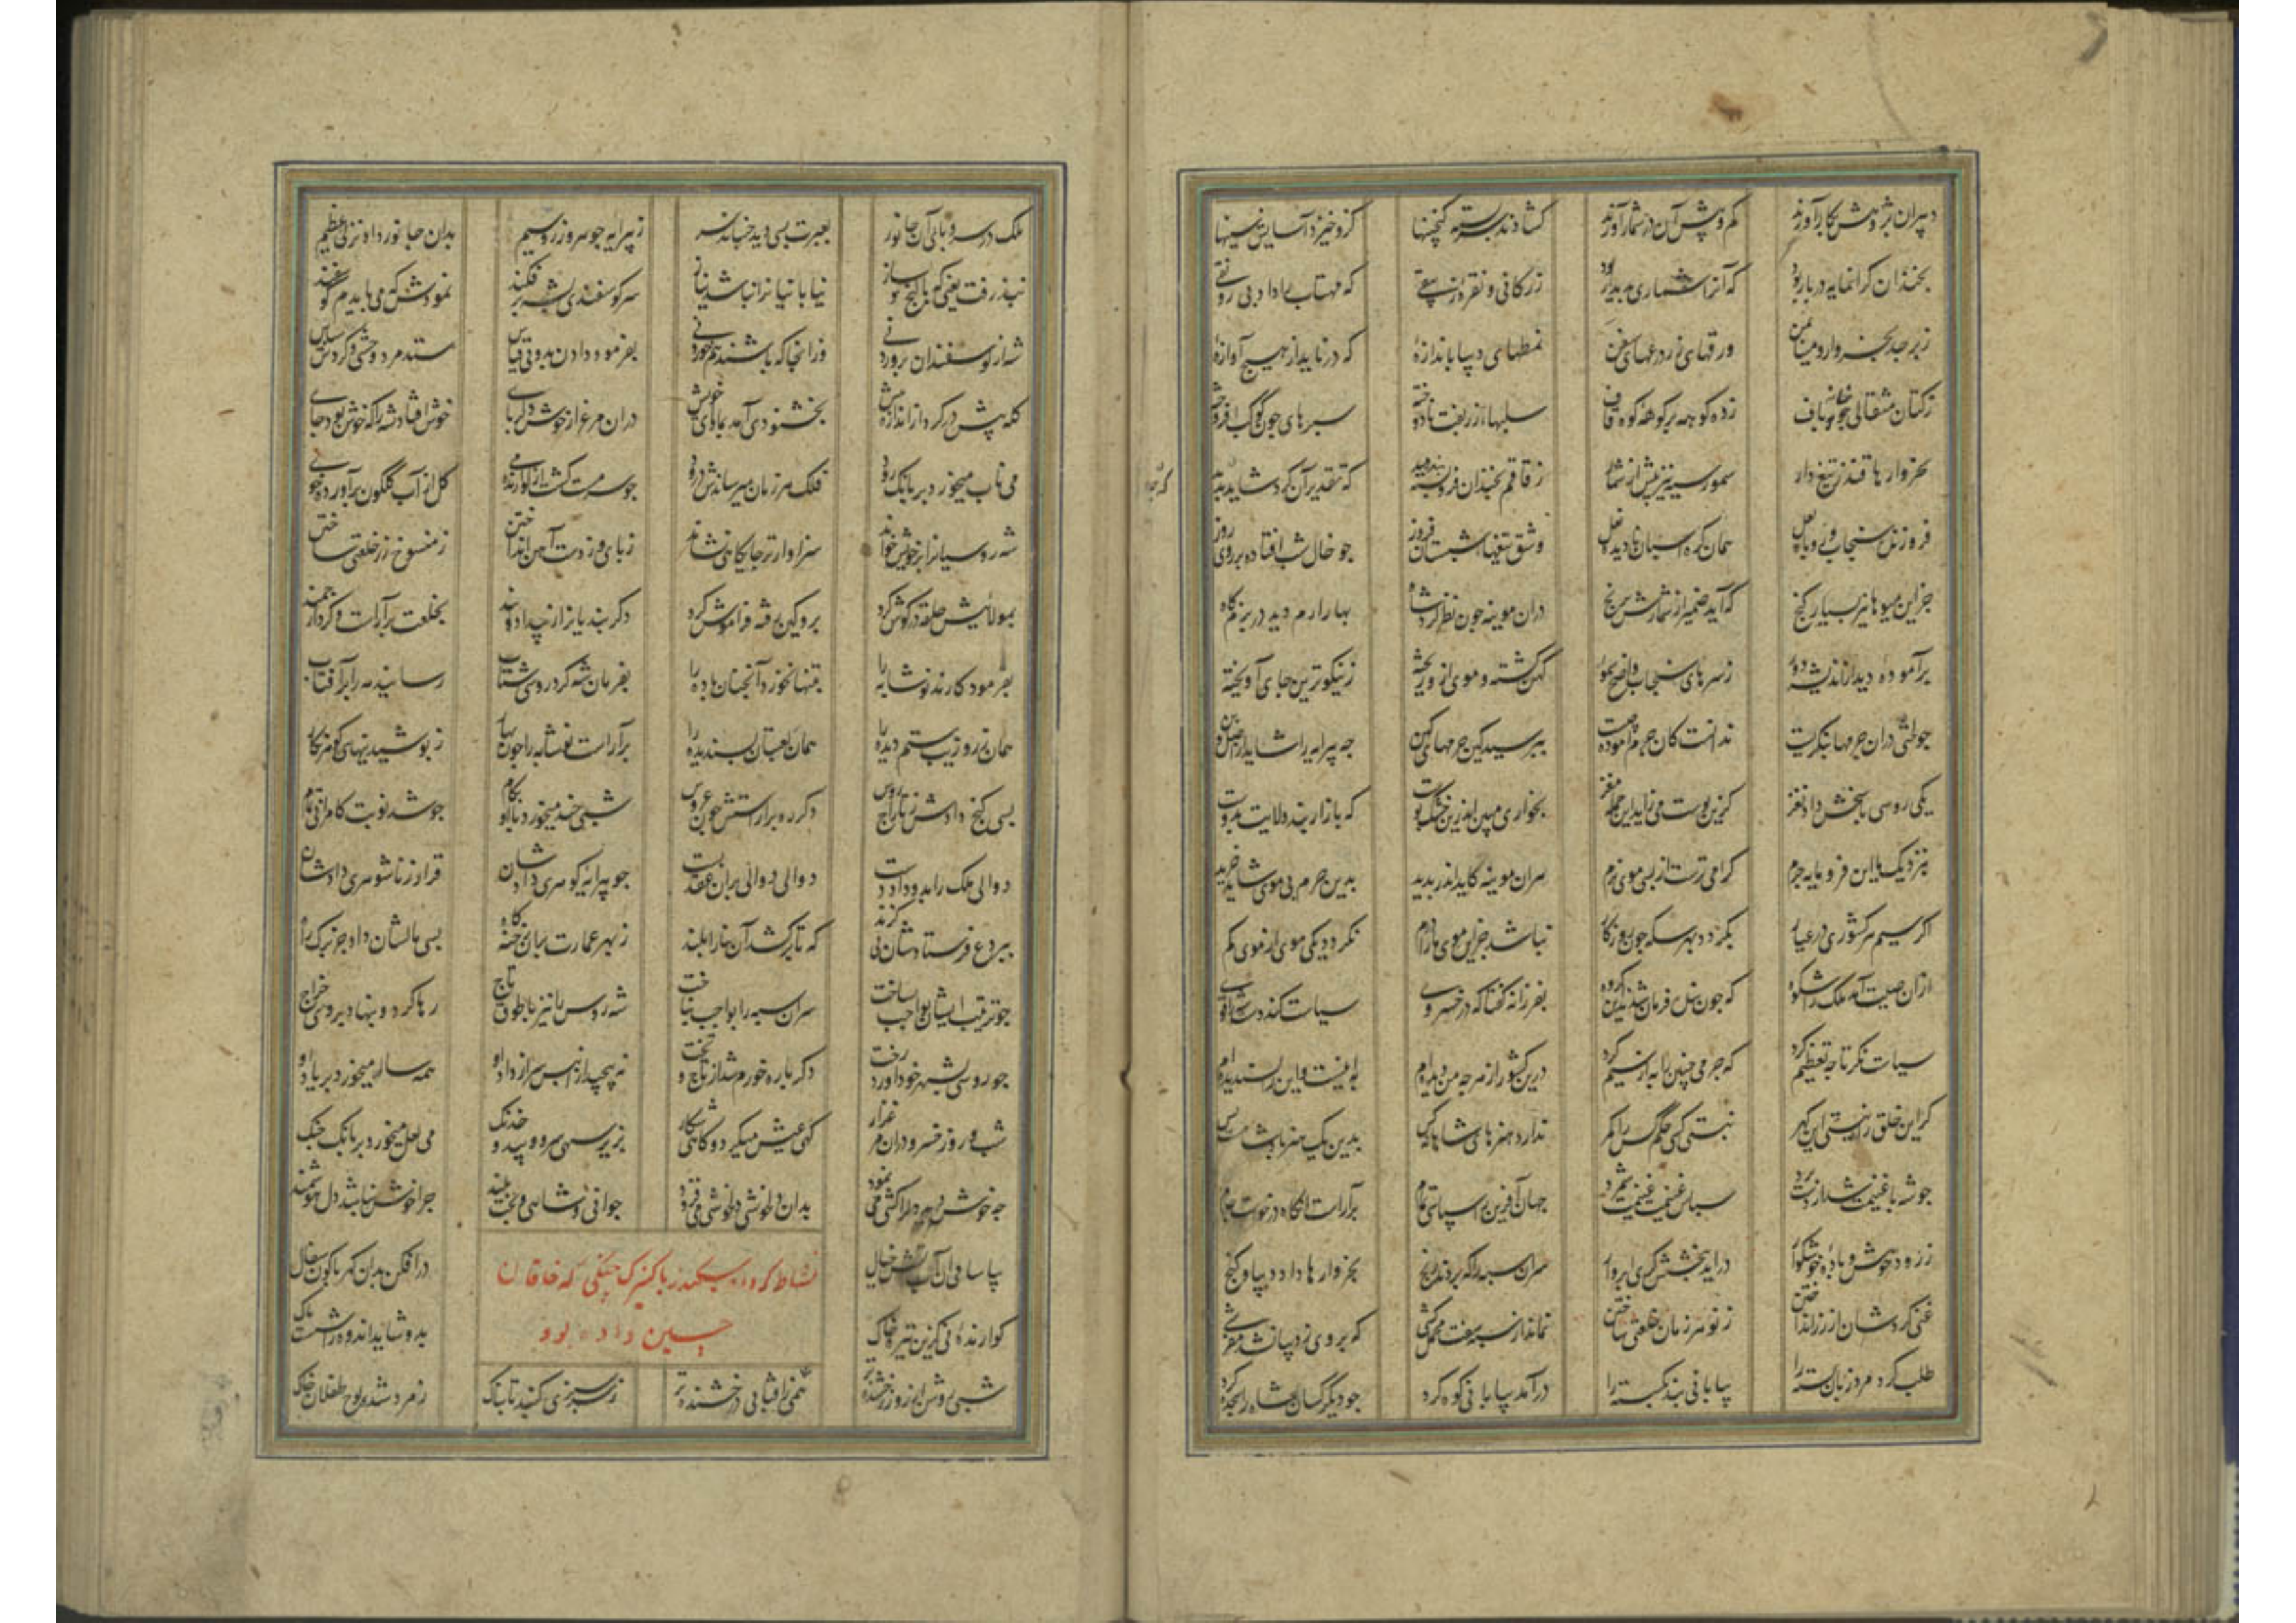 دبیران پژوهش بکار آورند کم و بیش آن در شمار آورند گشادند سربسته گنجینها کزو خیزد آسایش سینها
بخندان گرانمایه در بار بود که آنرا شماری بدیدار بود زر کانی و نقره زیبقی که مهتاب را داد بی رونقی
زبرجد بخروار و مینا بمن ورقهای زر درعهای سفن نمطهای دیبا باندازه که درناید از هیچ آوازه
ز کتان مثقالی خانه باف زده کوهه بر کوهه کوه قاف سلبها از زربفت نادوخته سپرهای چون کوکب افروخته
بخروارها قندز تیغ دار سمور سیه نیز بیش از شمار ز قاقم بخندان فرو بسته که تقدیر آن کرد شاید
سنجاب و روباه لعل همان کره اسبان نادیده نعل وشق نیفها شبستان فروز چو خال شب افتاده بر روی روز
جز این میوها نیز بسیار گنج که آید ضمیر از شمارش برنج دران موینه چون نظر کرد شاه بهار ارم دید در بزمگاه
برآموده دید از اندیشه دور ز سرهای سنجاب کهن گشته و موی ازو ریخته ز نیکوترین جای آویخته
چو لختی دران چرمها بنگریست ندانست کان چرم آموده چیست بپرسید کین چرمهای کهن چه پیرایه را شاید از اصل و بن
یکی روسی پاسخش داد نغز کزین پوست می زاید این جمله مغز بخواری مبین اندرین خشک پوست که بازار بند ولایت بدوست
بنزدیک ما این فرومایه چرم گرامی ترست از بسی موی نرم هران موینه کاید اندر پدید بدین چرم بی موی شاید خرید
اگر سیم هر کشوری در عیار بگردد بهر سکه چون روزگار نباشد جز این موی ما را درم نگردد یکی موی ازموی کم
ازان هیبت آمد ملک را شکوه که چون فرمان شدند گروه بفرزانه گفتا که در خسروی سیاست کند دست شاه قوی
سیاست نگر تا چه تعظیم کرد که چرمی چنین را به از سیم کرد درین کشور از هرچه من دیده ام به اینست و این را پسندیده ام
گر این خلق را نیستی این گهر نبستی کسی حکم کس را کمر ندارد هنرهای شاهانه کس بدین یک هنر پادشاهست و بس
چو شه با غنیمت شد از دستبرد سپاس غنیمت غنیمت شمرد جهان آفرین را سپاسی تمام برآراست آنگاه درخواست جام
ز رود خوش و باده خوشگوار درآمد ببخشش کری ابروار سران سپه را که بردند رنج بخروارها داد دیبا و گنج
غنی کردشان از زر انداختن ز نو هر زمان خلعتی ساختن نماند از سپه هفت محمل کشی که بر وی مفرشی
طلب کرد مرد زبان بسته را بیابانی بند بگسسته را درآمد بیابانی کوه گرد چو دیگر کسان شاه را سجده کرد
ملک در سر و پای آن جانور بعبرت بسی دید جنباند سر ز پیرایه جوهر و زر و سیم بدان جانور داد نزلی عظیم
نپذرفت یعنی که با گنج و ساز بیابانیانرا نباشد نیاز سر گوسفندی بشه برفکند نمودش که می بایدم گوسفند
شه از گوسفندان پروردنی وزانجا که باشند هم خوردنی بفرمود دادن بدو بی قیاس ستد مرد وحشی و کردش سپاس
گله پیش در کرد از اندازه بیش بخشنودی آمد بماوای خویش دران مرغزار خوش دلربای خوش افتاد شه را که خوش بود جای
می ناب میخورد بر بانگ رود فلک هر زمان میرساندش درود چو سرمست گشت از گوارنده می گل از آب گلگون برآورد خوی
شه روسیانرا بر خویش خواند سزاوارتر جایگاهی نشاند ز پای و ز دست آهن انداختن ز منسوخ زر خلعتی ساختن
بمولائیش حلقه در گوش کرد برو کین رفته فراموش کرد دگر بندیانرا ز بیداد و بند بخلعت برآراست و کرد ارجمند
بفرمود کارند نوشابه را بتنها نخورد آنچنان باده را بفرمان شه کرد روسی شتاب رسانید مه را بر آفتاب
همان زیب ستم دیده را همان لعبتان پسندیده را برآراست نوشابه را چون بهار ز پوشیدنیهای گوهرنگار
بسی گنج دادش ز تاراج روس دگرره برآراستش چون عروس شبی چند میخورد با او بکام چو شد نوبت کامرانی تمام
دوالی ملک را بدو داد دست دوالی دوالی بران عقد بست چو پیرایه گوهری دادشان قرار زناشوهری دادشان
ببردع فرستادشان بی گزند که تا برکشد آن بنا را بلند ز بهر عمارت بران رخنه گاه بسی مالشان داد جز برگ راه
چو ترتیب ایشان بواجب بساخت سران سپه را بواجب نواخت شه روس را نیز با طوق و تاج رها کرد و بنهاد بر وی خراج
چو روسی بشهر خود آورد رخت دگر باره خورم شد از تاج و تخت نپیچید ازان پس سر از داد او همه ساله میخورد بر یاد او
شب و روز خسرو دران مرغزار گهی عیش میکرد و گاهی شکار بزیر سهی سرو و بید و خدنگ می لعل میخورد بر بانگ چنگ
چه خوش بدان دلخوشی دلخوشی می فزود جوانی و شاهی و بخت بلند چرا خوش نباشد دل هوشمند
بیا ساقی آن آب آتش خیال درافکن بدان کهربا گون سفال
نشاط کردن سکندر با کنیزک چینی که خاقان
چین داده بود
گوارنده آبی کزین تیره خاک بدو شاید اندوه را شست پاک
شبی روشن از روز رخشنده تر مهی زافتابی درخشنده تر ز سرسبزی گنبد تابناک زمرد شده لوح طفلان خاک